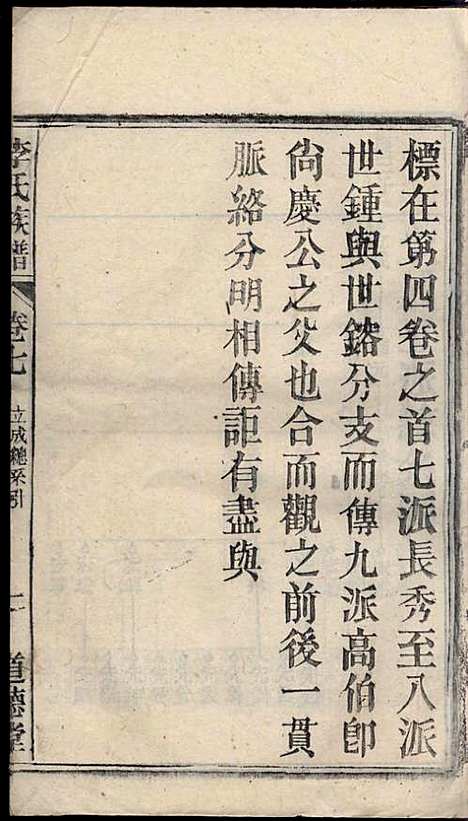 標在第四卷之首七派長秀至八派
世鍾與世鎔分支而傳九派高伯卽
尙慶公之父也合而觀之前後一貫
脈絡分明相傳詎有盡與
李氏族譜
卷七
立成總系引
道德堂